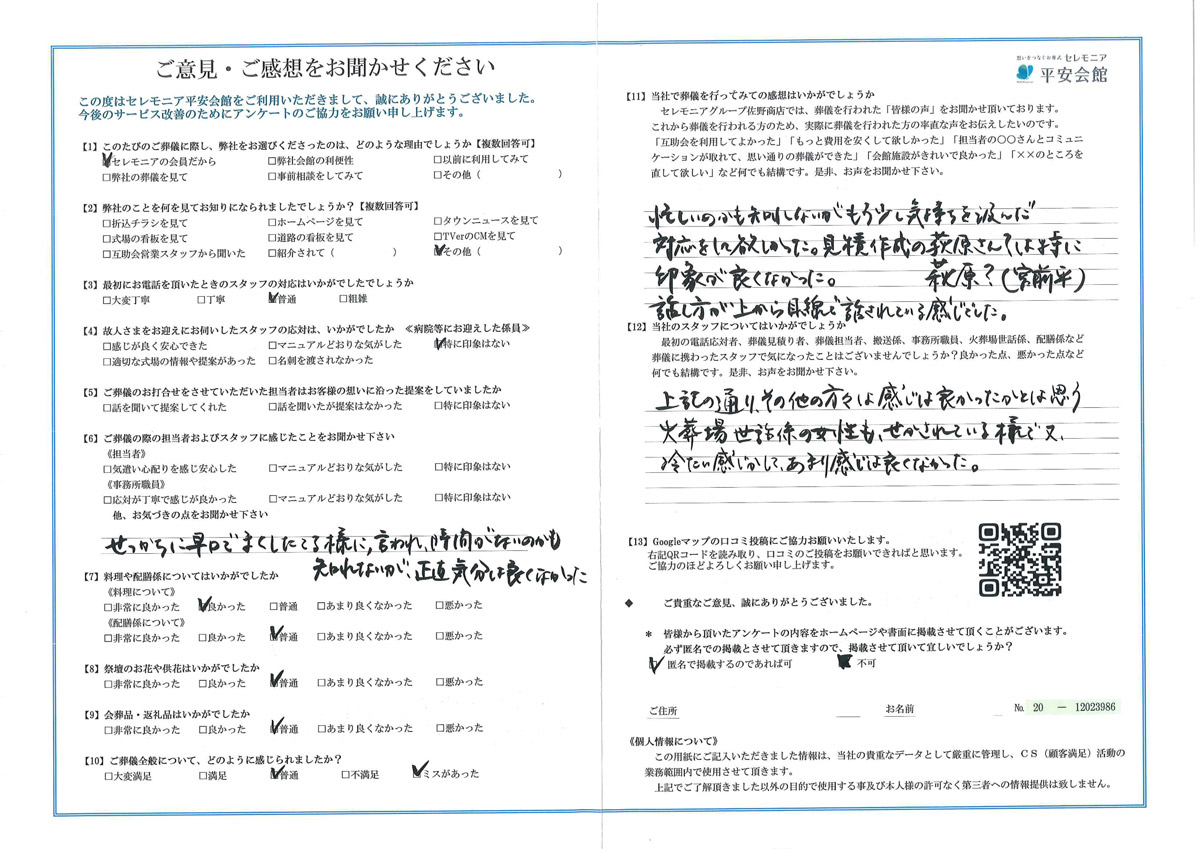 ご意見・ご感想をお聞かせください
この度はセレモニア平安会館をご利用いただきまして、誠にありがとうございました。
今後のサービス改善のためにアンケートのご協力をお願い申し上げます。
【1】このたびのご葬儀に際し、弊社をお選びくださったのは、どのような理由でしょうか【複数回答可】
☑セレモニアの会員だから □弊社会館の利便性 □以前に利用してみて
□弊社の葬儀を見て □事前相談をしてみて □その他（ ）
【2】弊社のことを何を見てお知りになられましたでしょうか？【複数回答可】
□折込チラシを見て □ホームページを見て □タウンニュースを見て
□式場の看板を見て □道路の看板を見て □TVerのCMを見て
□互助会営業スタッフから聞いた □紹介されて（ ） ☑その他（ ）
【3】最初にお電話を頂いたときのスタッフの対応はいかがでしたでしょうか
□大変丁寧 □丁寧 ☑普通 □粗雑
【4】故人さまをお迎えにお伺いしたスタッフの応対は、いかがでしたか ≪病院等にお迎えした係員≫
□感じが良く安心できた □マニュアルどおりな気がした ☑特に印象はない
□適切な式場の情報や提案があった □名刺を渡されなかった
【5】ご葬儀のお打合せをさせていただいた担当者はお客様の想いに沿った提案をしていましたか
□話を聞いて提案してくれた □話を聞いたが提案はなかった □特に印象はない
【6】ご葬儀の際の担当者およびスタッフに感じたことをお聞かせ下さい
《担当者》
□気遣い心配りを感じ安心した □マニュアルどおりな気がした □特に印象はない
《事務所職員》
□応対が丁寧で感じが良かった □マニュアルどおりな気がした □特に印象はない
他、お気づきの点をお聞かせ下さい
せっかちに早口でまくしたてる様に、言われ、時間がないのかも
知れないが、正直気分は良くなかった
【7】料理や配膳係についてはいかがでしたか
《料理について》
□非常に良かった ☑良かった □普通 □あまり良くなかった □悪かった
《配膳係について》
□非常に良かった □良かった ☑普通 □あまり良くなかった □悪かった
【8】祭壇のお花や供花はいかがでしたか
□非常に良かった □良かった ☑普通 □あまり良くなかった □悪かった
【9】会葬品・返礼品はいかがでしたか
□非常に良かった □良かった ☑普通 □あまり良くなかった □悪かった
【10】ご葬儀全般について、どのように感じられましたか？
□大変満足 □満足 ☑普通 □不満足 ☑ミスがあった
想いをつなぐお葬式 セレモニア
平安会館
【11】当社で葬儀を行ってみての感想はいかがでしょうか
セレモニアグループ佐野商店では、葬儀を行われた「皆様の声」をお聞かせ頂いております。
これから葬儀を行われる方のため、実際に葬儀を行われた方の率直な声をお伝えしたいのです。
「互助会を利用してよかった」「もっと費用を安くして欲しかった」「担当者の〇〇さんとコミュニ
ケーションが取れて、思い通りの葬儀ができた」「会館施設がきれいで良かった」「××のところを
直して欲しい」など何でも結構です。是非、お声をお聞かせ下さい。
忙しいのかも知れないがもう少し気持ちを汲んだ
対応をして欲しかった。見積作成の萩原さんては特に
印象が良くなかった。 萩原？(宮前平)
話し方が上から目線で話されている感じでした。
【12】当社のスタッフについてはいかがでしょうか
最初の電話応対者、葬儀見積り者、葬儀担当者、搬送係、事務所職員、火葬場世話係、配膳係など
葬儀に携わったスタッフで気になったことはございませんでしょうか？良かった点、悪かった点など
何でも結構です。是非、お声をお聞かせ下さい。
上記の通り、その他の方々は感じは良かったかとは思う
火葬場世話係の女性も、せかされている様で又、
冷たい感じがして、あまり感じは良くなかった。
【13】Googleマップの口コミ投稿にご協力お願いいたします。
右記QRコードを読み取り、口コミのご投稿をお願いできればと思います。
ご協力のほどよろしくお願い申し上げます。
◆ ご貴重なご意見、誠にありがとうございました。
＊ 皆様から頂いたアンケートの内容をホームページや書面に掲載させて頂くことがございます。
必ず匿名での掲載とさせて頂きますので、掲載させて頂いて宜しいでしょうか？
☑匿名で掲載するのであれば可 ■不可
ご住所 お名前 № 20 － 12023986
《個人情報について》
この用紙にご記入いただきました情報は、当社の貴重なデータとして厳重に管理し、ＣＳ（顧客満足）活動の
業務範囲内で使用させて頂きます。
上記でご了解頂きました以外の目的で使用する事及び本人様の許可なく第三者への情報提供は致しません。